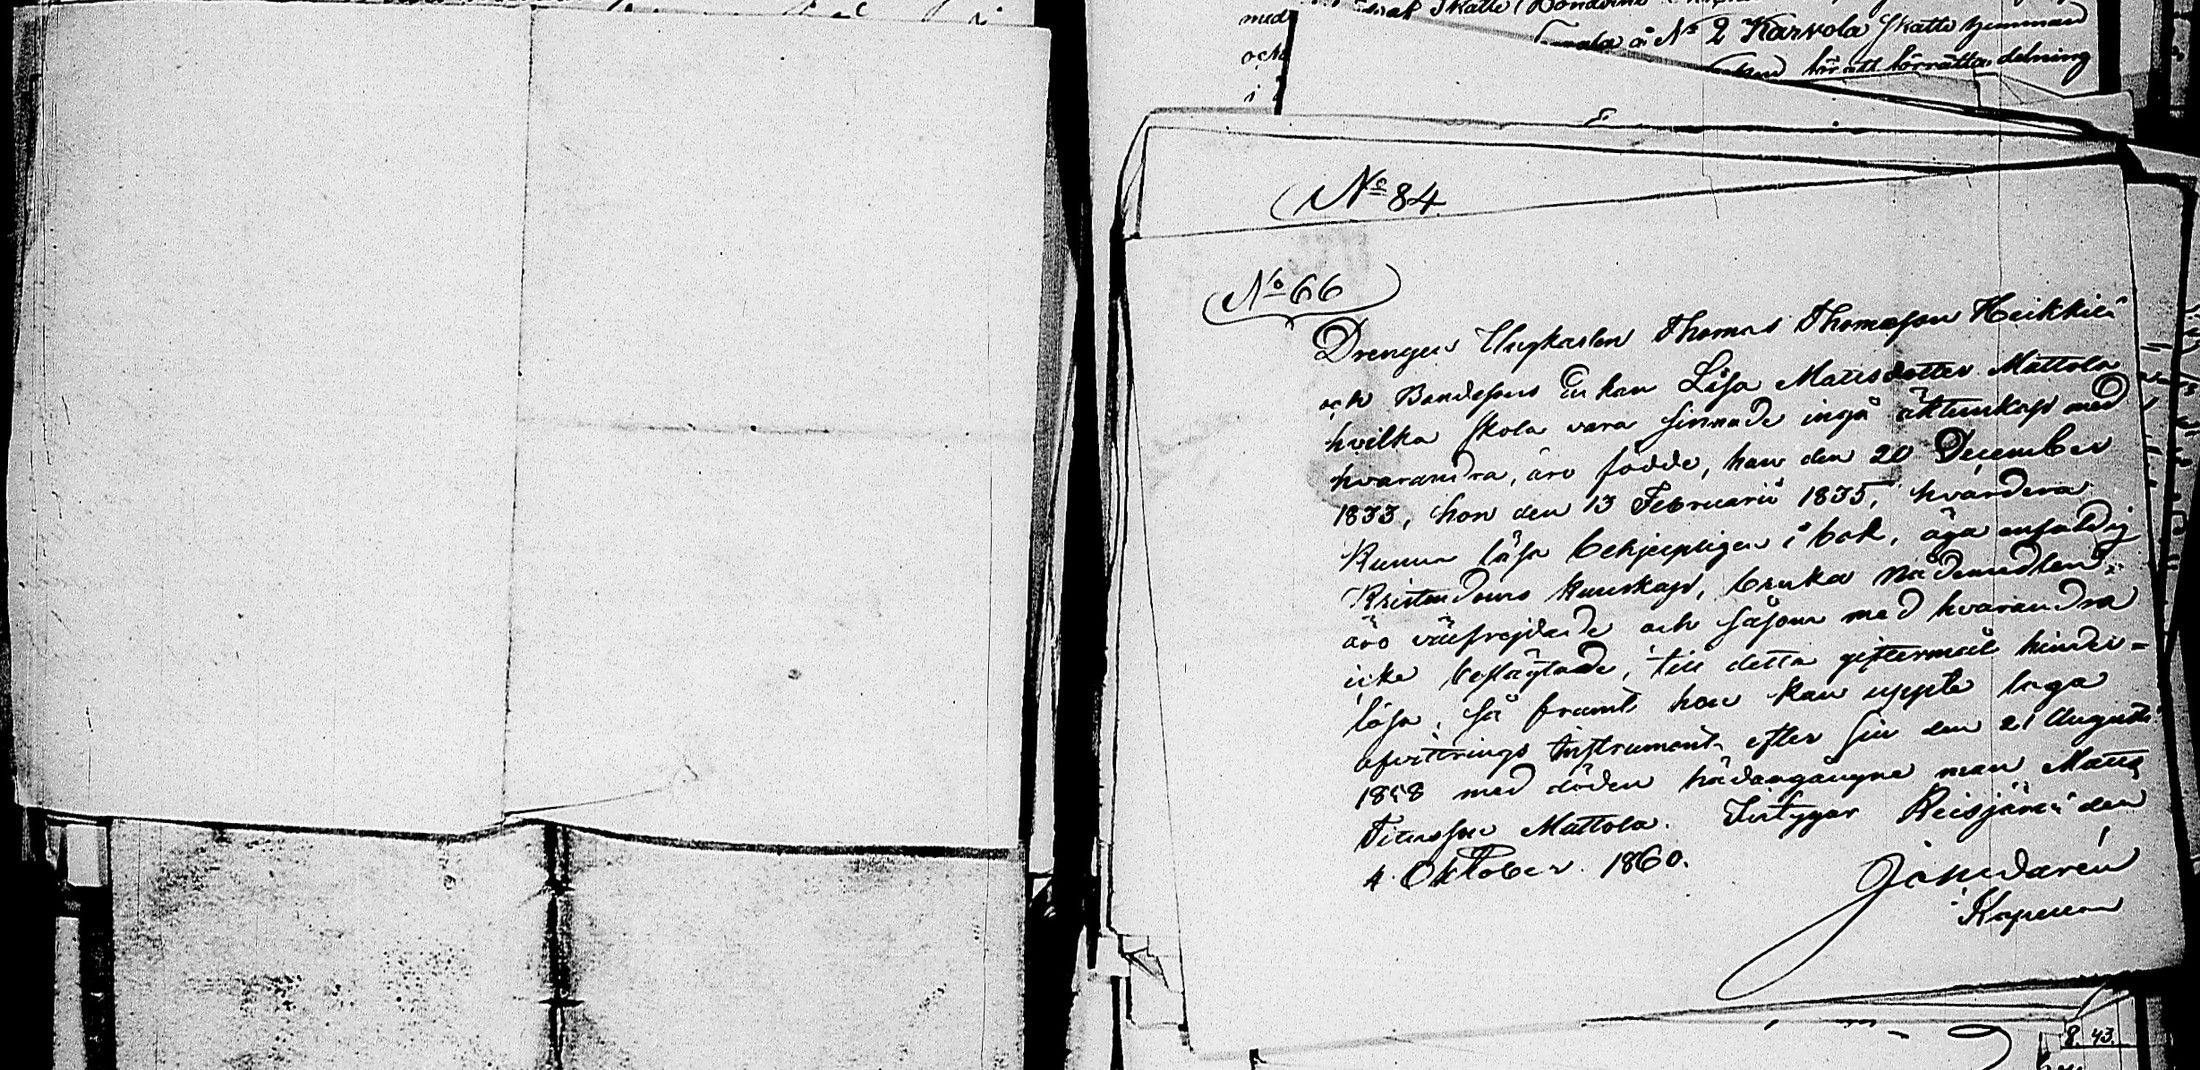 med
och
i
Skatte Bonden
å No 2 Karvola Skatte hemman
förrätta delning
No 84
No 66
Drengen Ungkarlen Thomas Thomasson Heikkilä
och Bondesons Enkan Lisa Mattsdotter Mattola
hvilka skola vara sinnade ingå äktenskap med
hvarandra, äro födde, han den 20 December
1833, hon den 13 Februarii 1835, hvardera
kunna läsa behjelpligen i bok, äga enfaldig
Kristendoms kunskap, bruka Nådemedlen,
äro välfrejdade och såsom med hvarandra
icke beslägtade, till detta giftermål hinder=
lösa, så framt hon kan uppte laga
afvittrings Instrument efter sin den 21 Augusti
1858 med döden hädangångne man Matts
Mattola. Intygar Reisjärvi den
4 Oktober 1860.
Kapellan
8. 43.